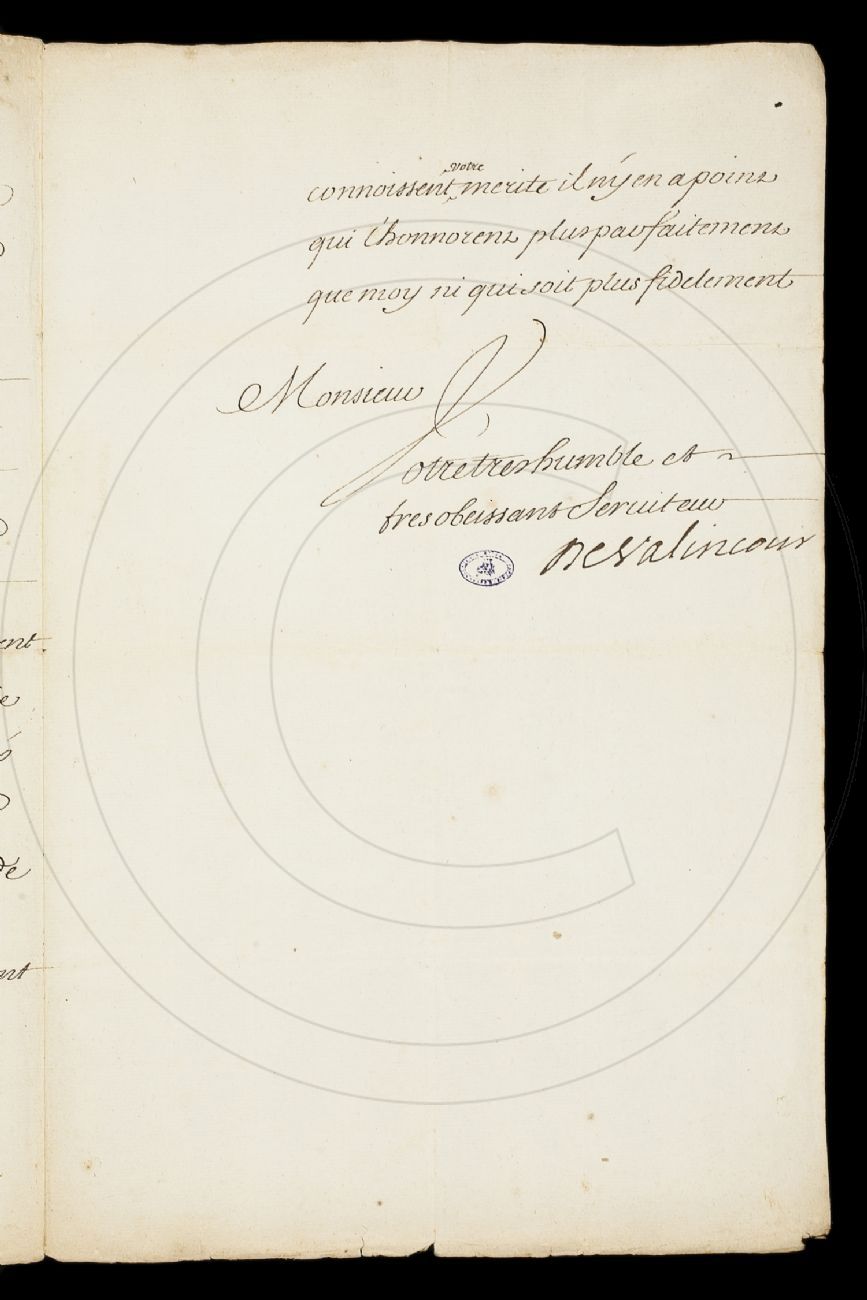 connoissent votre merite il n'y en a point
qui l'honnorent plus parfaitement
que moy ni qui soit plus fidelement
Monsieur
Votre tres humble et
tres obeissant Serviteur
De Valincour
ent
de